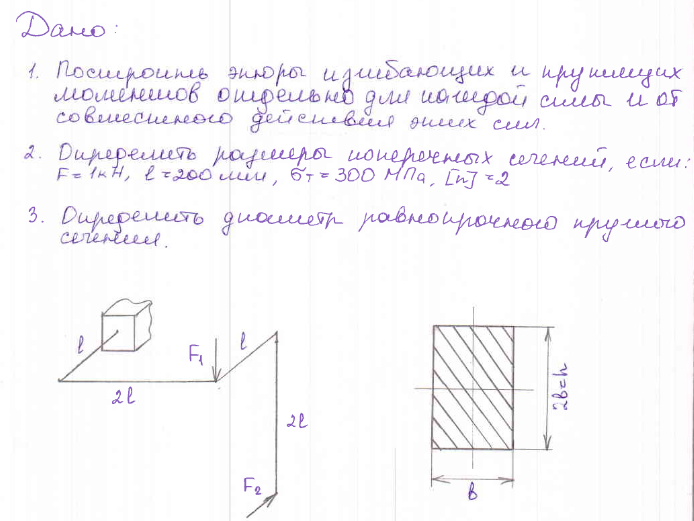 Дано:
1. Построить эпюры изгибающих и крутящих
моментов отдельно для каждой силы и от
совместного действия этих сил.
2. Определить размеры поперечных сечений, если:
F=1кН, l=200мм, σт=300 МПа, [n]=2
3. Определить диаметр равнопрочного круглого
сечения.
l
F₁
l
2l
2l
F₂
2b=h
b